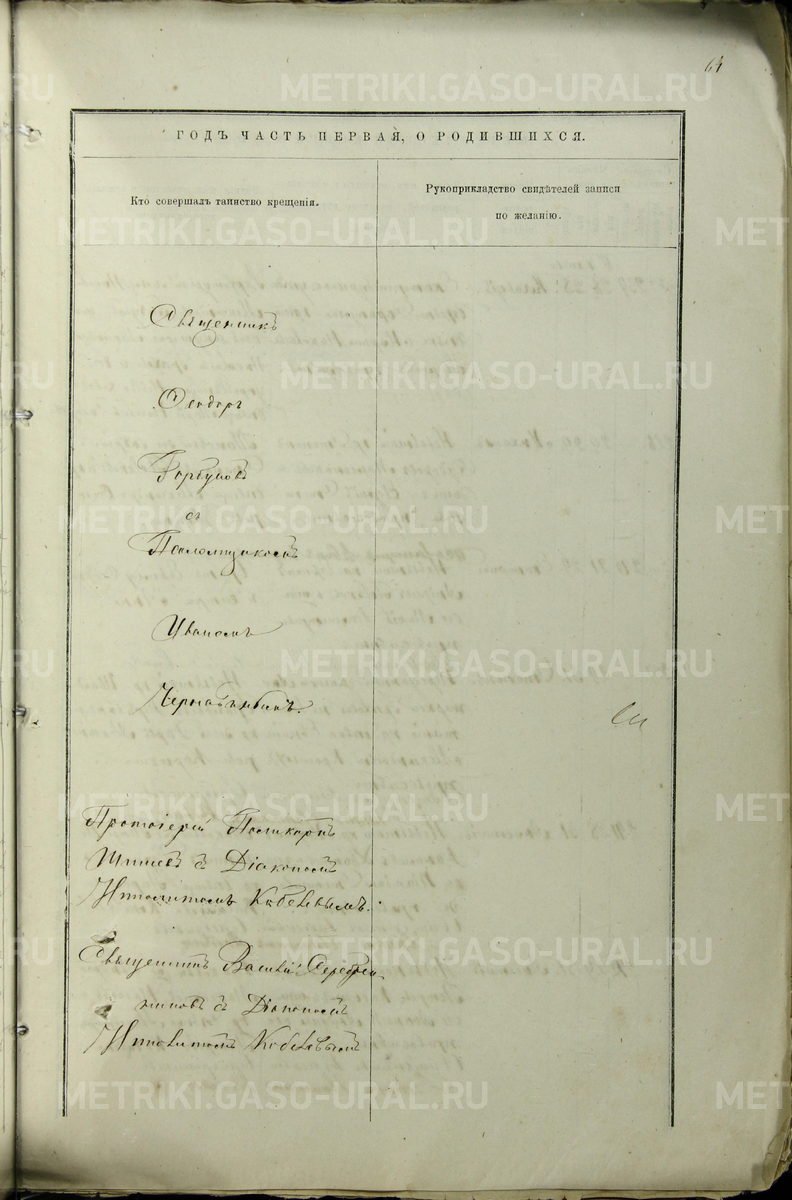 64
ГОДЪ ЧАСТЬ ПЕРВАЯ, О РОДИВШИХСЯ.
Кто совершалъ таинство крещенія.
Рукоприкладство свидѣтелей записи
по желанію.
Священникъ
Ѳеодоръ
Горбуновъ
съ
Псаломщикомъ
Иваномъ
Протоіерей Поликарпъ
съ Діакономъ
Ипполитомъ Кобелевымъ.
Священникъ Василій Серебрен
никовъ съ Діакономъ
Ипполитомъ Кобелевымъ
METRIKI.GASO-URAL.RU